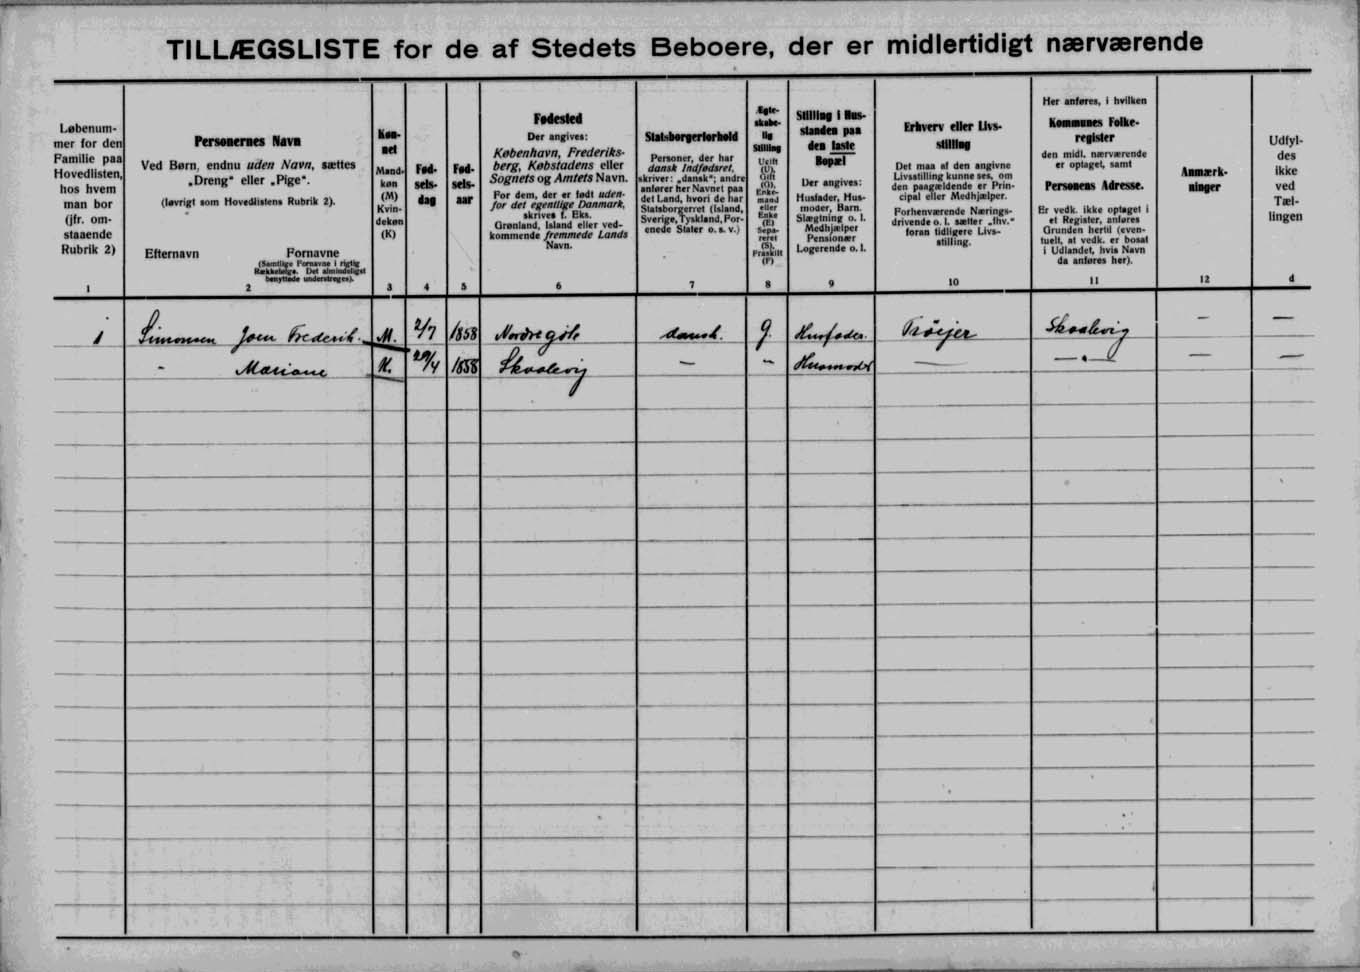 TILLÆGSLISTE for de af Stedets Beboere, der er midlertidigt nærværende
Løbenum-
mer for den
Familie paa
Hovedlisten,
hos hvem
man bor
(jfr. om-
staaende
Rubrik 2)
1
Personernes Navn
Ved Børn, endnu uden Navn, sættes
„Dreng“ eller „Pige“.
(Iøvrigt som Hovedlistens Rubrik 2).
Efternavn Fornavne
(Samtlige Fornavne i rigtig
Rækkefølge. Det almindeligst
benyttede understreges).
2
Køn-
net
Mand-
køn
(M)
Kvin-
dekøn
(K)
3
Fød-
sels-
dag
4
Fød-
sels-
aar
5
Fødested
Der angives:
København, Frederiks-
berg, Købstadens eller
Sognets og Amtets Navn.
For dem, der er født uden-
for det egentlige Danmark,
skrives f. Eks.
Grønland, Island eller ved-
kommende fremmede Lands
Navn.
6
Statsborgerforhold
Personer, der har
dansk Indfødsret,
skriver: „dansk“; andre
anfører her Navnet paa
det Land, hvori de har
Statsborgerret (Island,
Sverige, Tyskland, For-
enede Stater o. s. v.)
7
Ægte-
skabe-
lig
Stilling
Ugift
(U),
Gift
(G),
Enke-
mand
eller
Enke
(E)
Sepa-
reret
(S),
Fraskilt
(F)
8
Stilling i Hus-
standen paa
den faste
Bopæl
Der angives:
Husfader, Hus-
moder, Barn.
Slægtning o. l.
Medhjælper
Pensionær
Logerende o. l.
9
Erhverv eller Livs-
stilling
Det maa af den angivne
Livsstilling kunne ses, om
den paagældende er Prin-
cipal eller Medhjælper.
Forhenværende Nærings-
drivende o. l. sætter „fhv.“
foran tidligere Livs-
stilling.
10
Her anføres, i hvilken
Kommunes Folke-
register
den midl. nærværende
er optaget, samt
Personens Adresse.
Er vedk. ikke optaget i
et Register, anføres
Grunden hertil (even-
tuelt, at vedk. er bosat
i Udlandet, hvis Navn
da anføres her).
11
Anmærk-
ninger
12
Udfyl-
des
ikke
ved
Tæl-
lingen
d
1 Simonsen Joen Frederik. M. 2/7 1858 Nordregøte dansk. g. Husfader. Skaalevig — —
- Mariane K. 29/4 1858 Skaalevig — " Husmoder — — " — — —